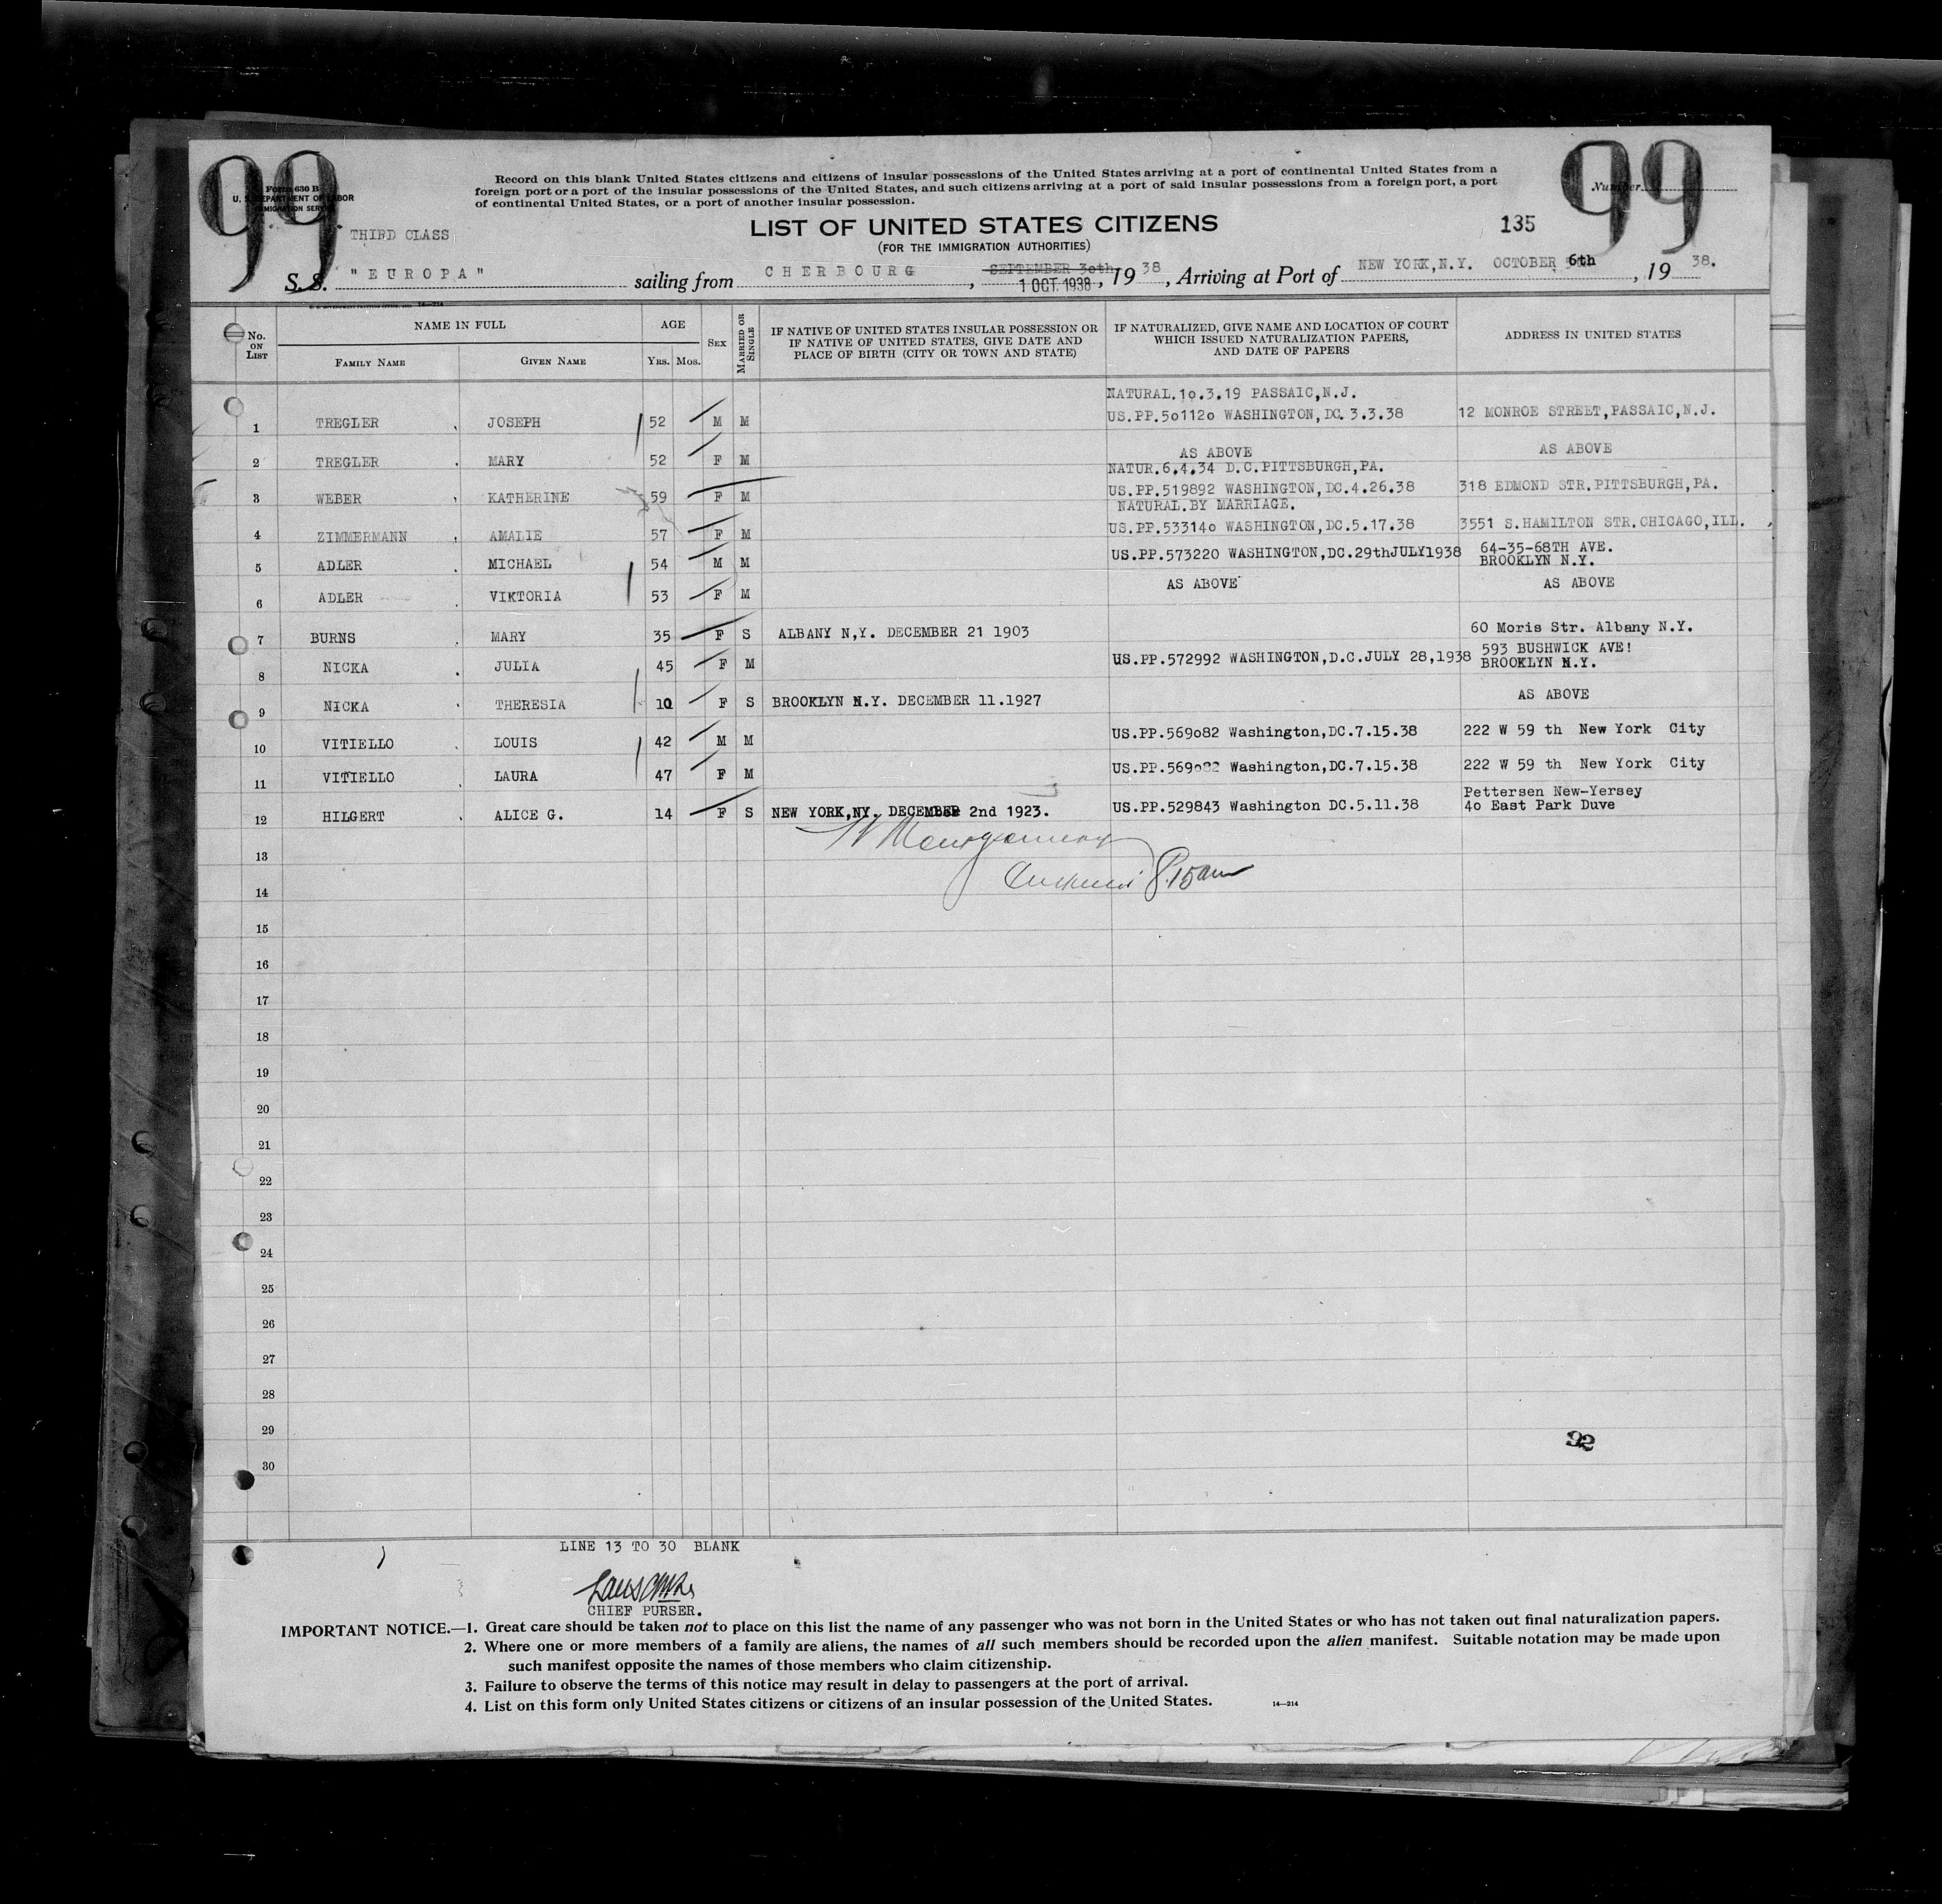 99
99
Form 630 B
U. S. DEPARTMENT OF LABOR
IMMIGRATION SERVICE
Number
Record on this blank United States citizens and citizens of insular possessions of the United States arriving at a port of continental United States from a
foreign port or a port of the insular possessions of the United States, and such citizens arriving at a port of said insular possessions from a foreign port, a port
of continental United States, or a port of another insular possession.
LIST OF UNITED STATES CITIZENS
(FOR THE IMMIGRATION AUTHORITIES)
135
THIRD CLASS
S. S. "EUROPA" sailing from CHERBOURG, SEPTEMBER 30th 1 OCT. 1938, 1938, Arriving at Port of NEW YORK,N.Y. OCTOBER 6th, 1938.
No. ON LIST
NAME IN FULL
FAMILY NAME
GIVEN NAME
AGE
YRS. MOS.
SEX
MARRIED OR SINGLE
IF NATIVE OF UNITED STATES INSULAR POSSESSION OR
IF NATIVE OF UNITED STATES, GIVE DATE AND
PLACE OF BIRTH (CITY OR TOWN AND STATE)
IF NATURALIZED, GIVE NAME AND LOCATION OF COURT
WHICH ISSUED NATURALIZATION PAPERS,
AND DATE OF PAPERS
ADDRESS IN UNITED STATES
NATURAL.1o.3.19 PASSAIC,N.J.
1 TREGLER JOSEPH 52 M M US.PP.5o112o WASHINGTON,DC. 3.3.38 12 MONROE STREET,PASSAIC,N.J.
2 TREGLER MARY 52 F M AS ABOVE AS ABOVE
NATUR.6.4.34 D.C.PITTSBURGH,PA.
3 WEBER KATHERINE 59 F M US.PP.519892 WASHINGTON,DC.4.26.38 318 EDMOND STR.PITTSBURGH,PA.
NATURAL.BY MARRIAGE.
4 ZIMMERMANN AMALIE 57 F M US.PP.53314o WASHINGTON,DC.5.17.38 3551 S.HAMILTON STR.CHICAGO,ILL.
5 ADLER MICHAEL 54 M M US.PP.573220 WASHINGTON,DC.29thJULY1938 64-35-68TH AVE.
BROOKLYN N.Y.
6 ADLER VIKTORIA 53 F M AS ABOVE AS ABOVE
7 BURNS MARY 35 F S ALBANY N,Y. DECEMBER 21 1903 60 Moris Str. Albany N.Y.
8 NICKA JULIA 45 F M US.PP.572992 WASHINGTON,D.C.JULY 28,1938 593 BUSHWICK AVE!
BROOKLYN N.Y.
9 NICKA THERESIA 10 F S BROOKLYN N.Y. DECEMBER 11.1927 AS ABOVE
10 VITIELLO LOUIS 42 M M US.PP.569o82 Washington,DC.7.15.38 222 W 59 th New York City
11 VITIELLO LAURA 47 F M US.PP.569o82 Washington,DC.7.15.38 222 W 59 th New York City
Pettersen New-Yersey
12 HILGERT ALICE G. 14 F S NEW YORK,NY. DECEMBER 2nd 1923. US.PP.529843 Washington DC.5.11.38 4o East Park Duve
13 Montgomery
14 8.15am
15
16
17
18
19
20
21
22
23
24
25
26
27
28
29
92
30
LINE 13 TO 30 BLANK
CHIEF PURSER.
IMPORTANT NOTICE.—1. Great care should be taken not to place on this list the name of any passenger who was not born in the United States or who has not taken out final naturalization papers.
2. Where one or more members of a family are aliens, the names of all such members should be recorded upon the alien manifest. Suitable notation may be made upon
such manifest opposite the names of those members who claim citizenship.
3. Failure to observe the terms of this notice may result in delay to passengers at the port of arrival.
4. List on this form only United States citizens or citizens of an insular possession of the United States.
14—214